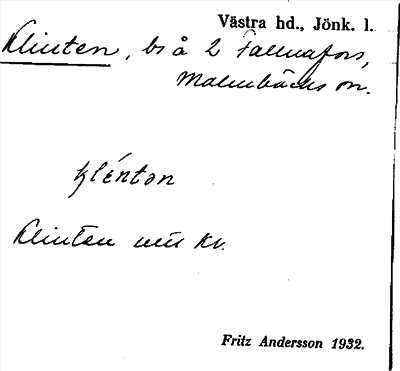 Västra hd., Jönk. l.
Klinten, bs å 2 Fallnafors,
Malmbäcks sn.
klénton
Klinten
kv.
Fritz Andersson 1932.